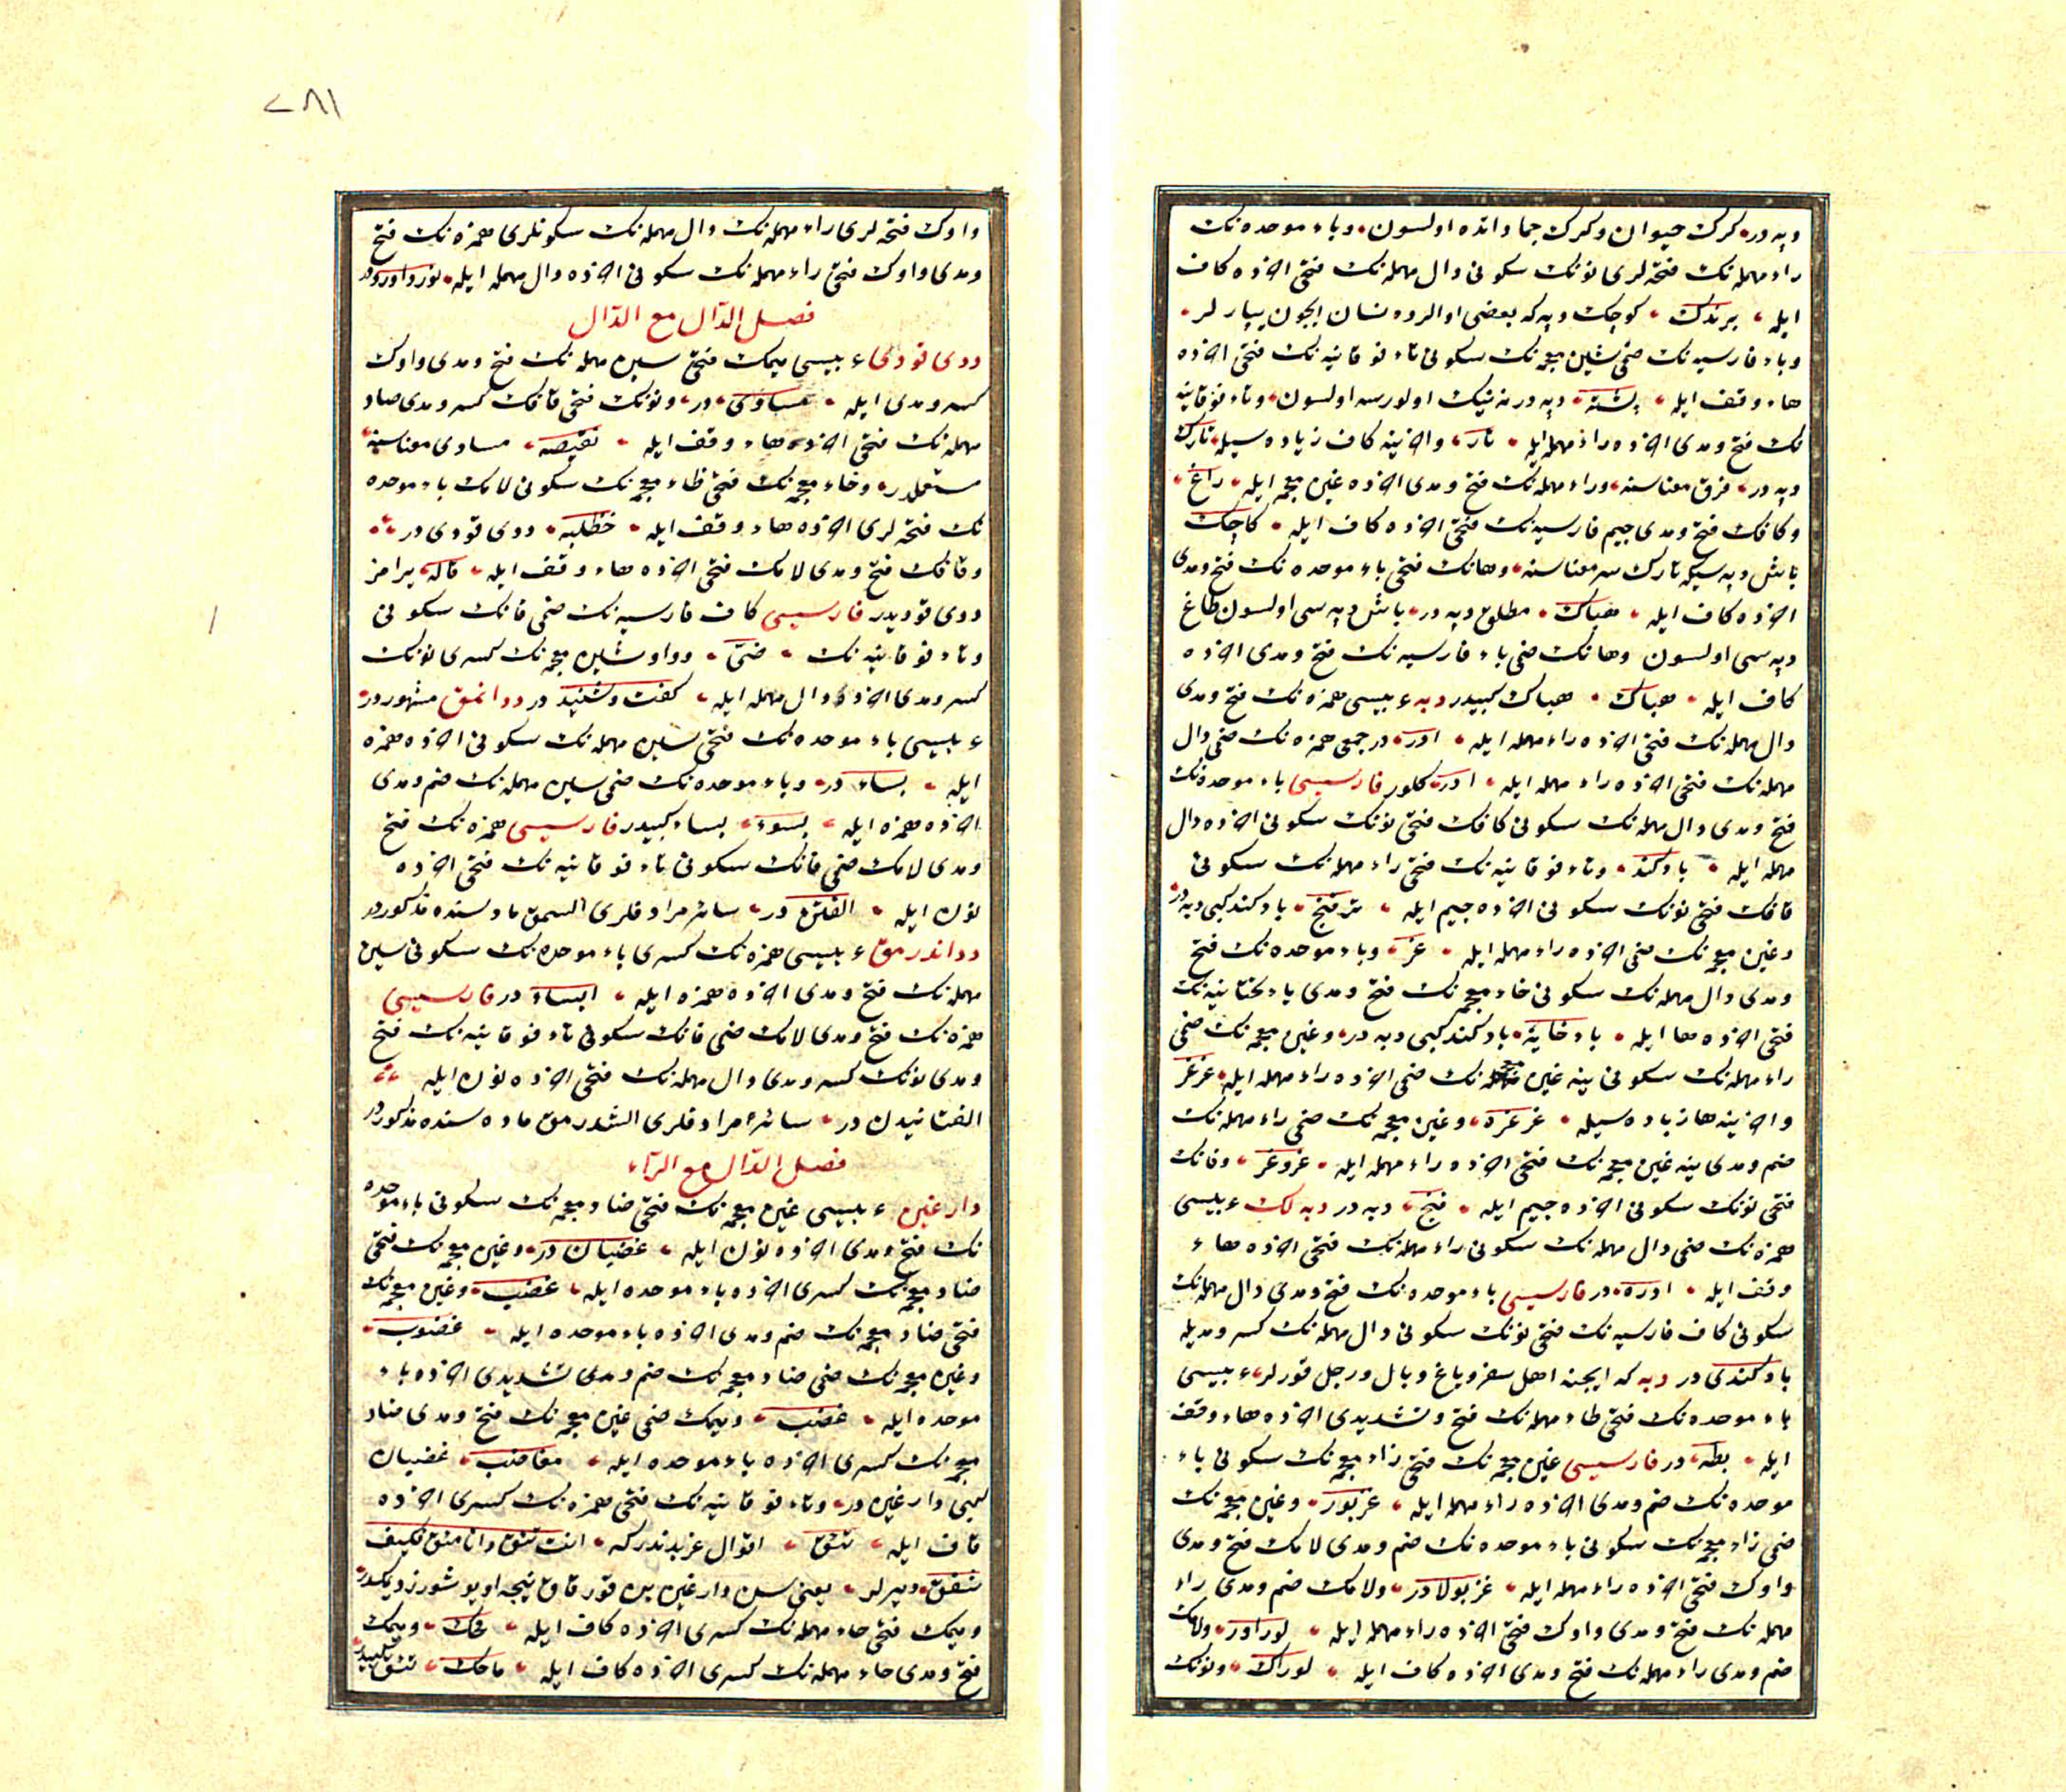 دپه در كرك حیوان و كرك جماداتده اولسون وباء موحده نك
راء مهمله نك فتحه لرى نونك سكونى دال مهمله نك فتحى اخذه كاف
ایله برندك كوچك دپه كه بعضى اوالرده نشان ایچون یپارلر
وباء فارسیه نك ضمى شین معجمه نك سكونى تاء فوقانیه نك فتحى اخذه
هاء وقف ایله پشته دپه در نه نیك اولورسه اولسون وتاء فوقانیه
نك فتح ومدى اخذه راء مهمله ایله تار واخرینه كاف زیاده سیله تارك
دپه در فرق معناسنه وراء مهمله نك فتح ومدى اخذه غین معجمه ایله راغ
وكافك فتح ومدى جیم فارسیه نك فتحى اخذه كاف ایله كاچك
باش دپه سیكه تارك سر معناسنه وهانك فتحى باء موحده نك فتح ومدى
اخذه كاف ایله هباك مطلق دپه در باش دپه سى اولسون طاغ
دپه سى اولسون وهانك ضمى باء فارسیه نك فتح ومدى اخذه
كاف ایله هپاك هباك كبیدر دبه عربیسى همزه نك فتح ومدى
دال مهمله نك فتحى اخذه راء مهمله ایله ادر در جمعى همزه نك ضمى دال
مهمله نك فتحى اخذه راء مهمله ایله ادر كلور فارسیسى باء موحده نك
فتح ومدى دال مهمله نك سكونى كافك فتحى نونك سكونى اخذه دال
مهمله ایله بادكند وتاء فوقانیه نك فتحى راء مهمله نك سكونى
قافك فتحى نونك سكونى اخذه جیم ایله ترقنج بادكند كبى دبه در
وغین معجمه نك ضمى اخذه راء مهمله ایله غر وباء موحده نك فتح
ومدى دال مهمله نك سكونى خاء معجمه نك فتح ومدى یاء تحتانیه نك
فتحى اخذه ها ایله بادخایه بادكند كبى دبه در وغین معجمه نك ضمى
راء مهمله نك سكونى ینه غین معجمه نك ضمى اخذه راء مهمله ایله غرغر
واخرینه ها زیاده سیله غرغره وغین معجمه نك ضمى راء مهمله نك
ضم ومدى ینه غین معجمه نك فتحى اخذه راء مهمله ایله غروغر وفانك
فتحى نونك سكونى اخذه جیم ایله فنج دبه در دبه لك عربیسى
همزه نك ضمى دال مهمله نك سكونى راء مهمله نك فتحى اخذه هاء
وقف ایله ادره در فارسیسى باء موحده نك فتح ومدى دال مهمله نك
سكونى كاف فارسیه نك فتحى نونك سكونى دال مهمله نك كسر ومدیله
بادكندى در دبه كه ایچنه اهل سفر و یاغ و بال ورجل قورلر عربیسى
باء موحده نك فتحى طاء مهمله نك فتح وتشدیدى اخذه هاء وقف
ایله بطه در فارسیسى غین معجمه نك فتحى زاء معجمه نك سكونى باء
موحده نك ضم ومدى اخذه راء مهمله ایله غزبور وغین معجمه نك
ضمى زاء معجمه نك سكونى باء موحده نك ضم ومدى لامك فتح ومدى
واوك فتحى اخذه راء مهمله ایله غزبولاور ولامك ضم ومدى راء
مهمله نك فتح ومدى واوك فتحى اخذه راء مهمله ایله لوراور ولامك
ضم ومدى راء مهمله نك فتح ومدى اخذه كاف ایله لوراك ونونك
٢٨١
واوك فتحه لرى راء مهمله نك دال مهمله نك سكونلرى همزه نك فتح
ومدى واوك فتحى راء مهمله نك سكونى اخذه دال مهمله ایله نورداورد در
فصل الدّال مع الدّال
ددى قودى عربیسى میمك فتحى سین مهمله نك فتح ومدى واوك
كسر ومدى ایله مساوى در ونونك فتحى قافك كسر ومدى صاد
مهمله نك فتحى اخذه هاء وقف ایله نقیصه مساوى معناسنه
مستعملدر وخاء معجمه نك فتحى ظاء معجمه نك سكونى لامك باء موحده
نك فتحه لرى اخذه هاء وقف ایله خظلبه ددى قودى در
وقافك فتح ومدى لامك فتحى اخذه هاء وقف ایله قاله یرامز
ددى قودیدر فارسیسى كاف فارسیه نك ضمى فانك سكونى
وتاء فوقانیه نك ضمى وواو شین معجمه نك كسرى نونك
كسر ومدى اخذه دال مهمله ایله كفت وشنید در ددانمق مشهوردر
عربیسى باء موحده نك فتحى سین مهمله نك سكونى اخذه همزه
ایله بساء در وباء موحده نك ضمى سین مهمله نك ضم ومدى
اخذه همزه ایله بسوء بساء كبیدر فارسیسى همزه نك فتح
ومدى لامك ضمى فانك سكونى تاء فوقانیه نك فتحى اخذه
نون ایله الفتن در سائر مرادفلرى السمق ماده سنده مذكوردر
دداندرمق عربیسى همزه نك كسرى باء موحده نك سكونى سین
مهمله نك فتح ومدى اخذه همزه ایله ابساء در فارسیسى
همزه نك فتح ومدى لامك ضمى فانك سكونى تاء فوقانیه نك فتح
ومدى نونك كسر ومدى دال مهمله نك فتحى اخذه نون ایله
الفتانیدن در سائر مرادفلرى الشدرمق ماده سنده مذكوردر
فصل الدّال مع الرّاء
دارغین عربیسى غین معجمه نك فتحى ضاد معجمه نك سكونى باء موحده
نك فتح ومدى اخذه نون ایله غضبان در وغین معجمه نك فتحى
ضاد معجمه نك كسرى اخذه باء موحده ایله غضب وغین معجمه نك
فتحى ضاد معجمه نك ضم ومدى اخذه باء موحده ایله غضوب
وغین معجمه نك ضمى ضاد معجمه نك ضم ومدى تشدیدى اخذه باء
موحده ایله غضب ومیمك ضمى غین معجمه نك فتح ومدى ضاد
معجمه نك كسرى اخذه باء موحده ایله مغاضب غضبان
كبى دارغین در وتاء فوقانیه نك فتحى همزه نك كسرى اخذه
قاف ایله تئق اقوال عربدندركه انت تئق وانا مئق فكیف
نتفق دیرلر یعنى سن دارغین بن قورقاق نیجه اویوشورز دیمكدر
ومیمك فتحى حاء مهمله نك كسرى اخذه كاف ایله محك ومیمك
فتح ومدى حاء مهمله نك كسرى اخذه كاف ایله ماحك تئق كبیدر